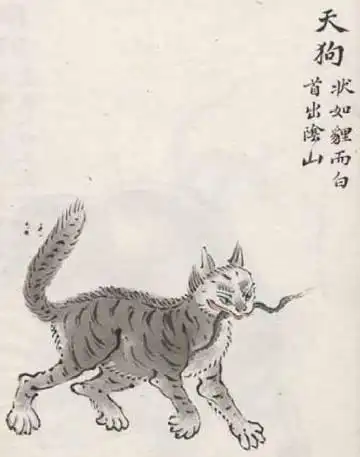 天狗
状如貍而白
首出陰山